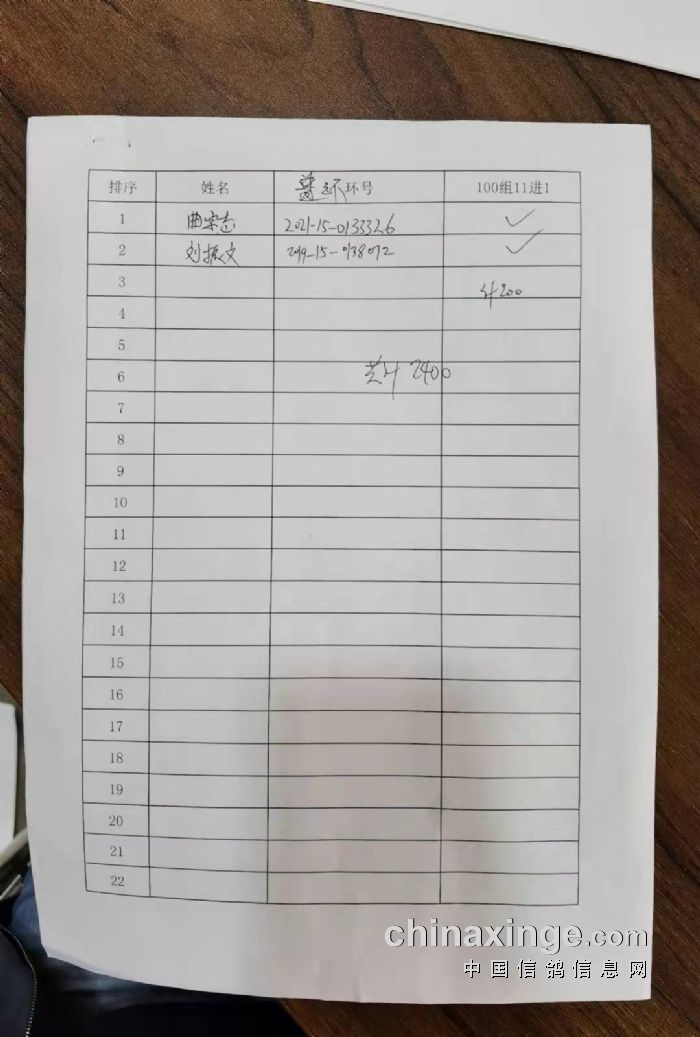 排序 姓名 普环环号 100组11进1
1 曲宗志 2021-15-0133326
2 刘振文 2019-15-0138072
3 计200
4
5
6 共计 2400
7
8
9
10
11
12
13
14
15
16
17
18
19
20
21
22
chinaxinge.com
中国信鸽信息网